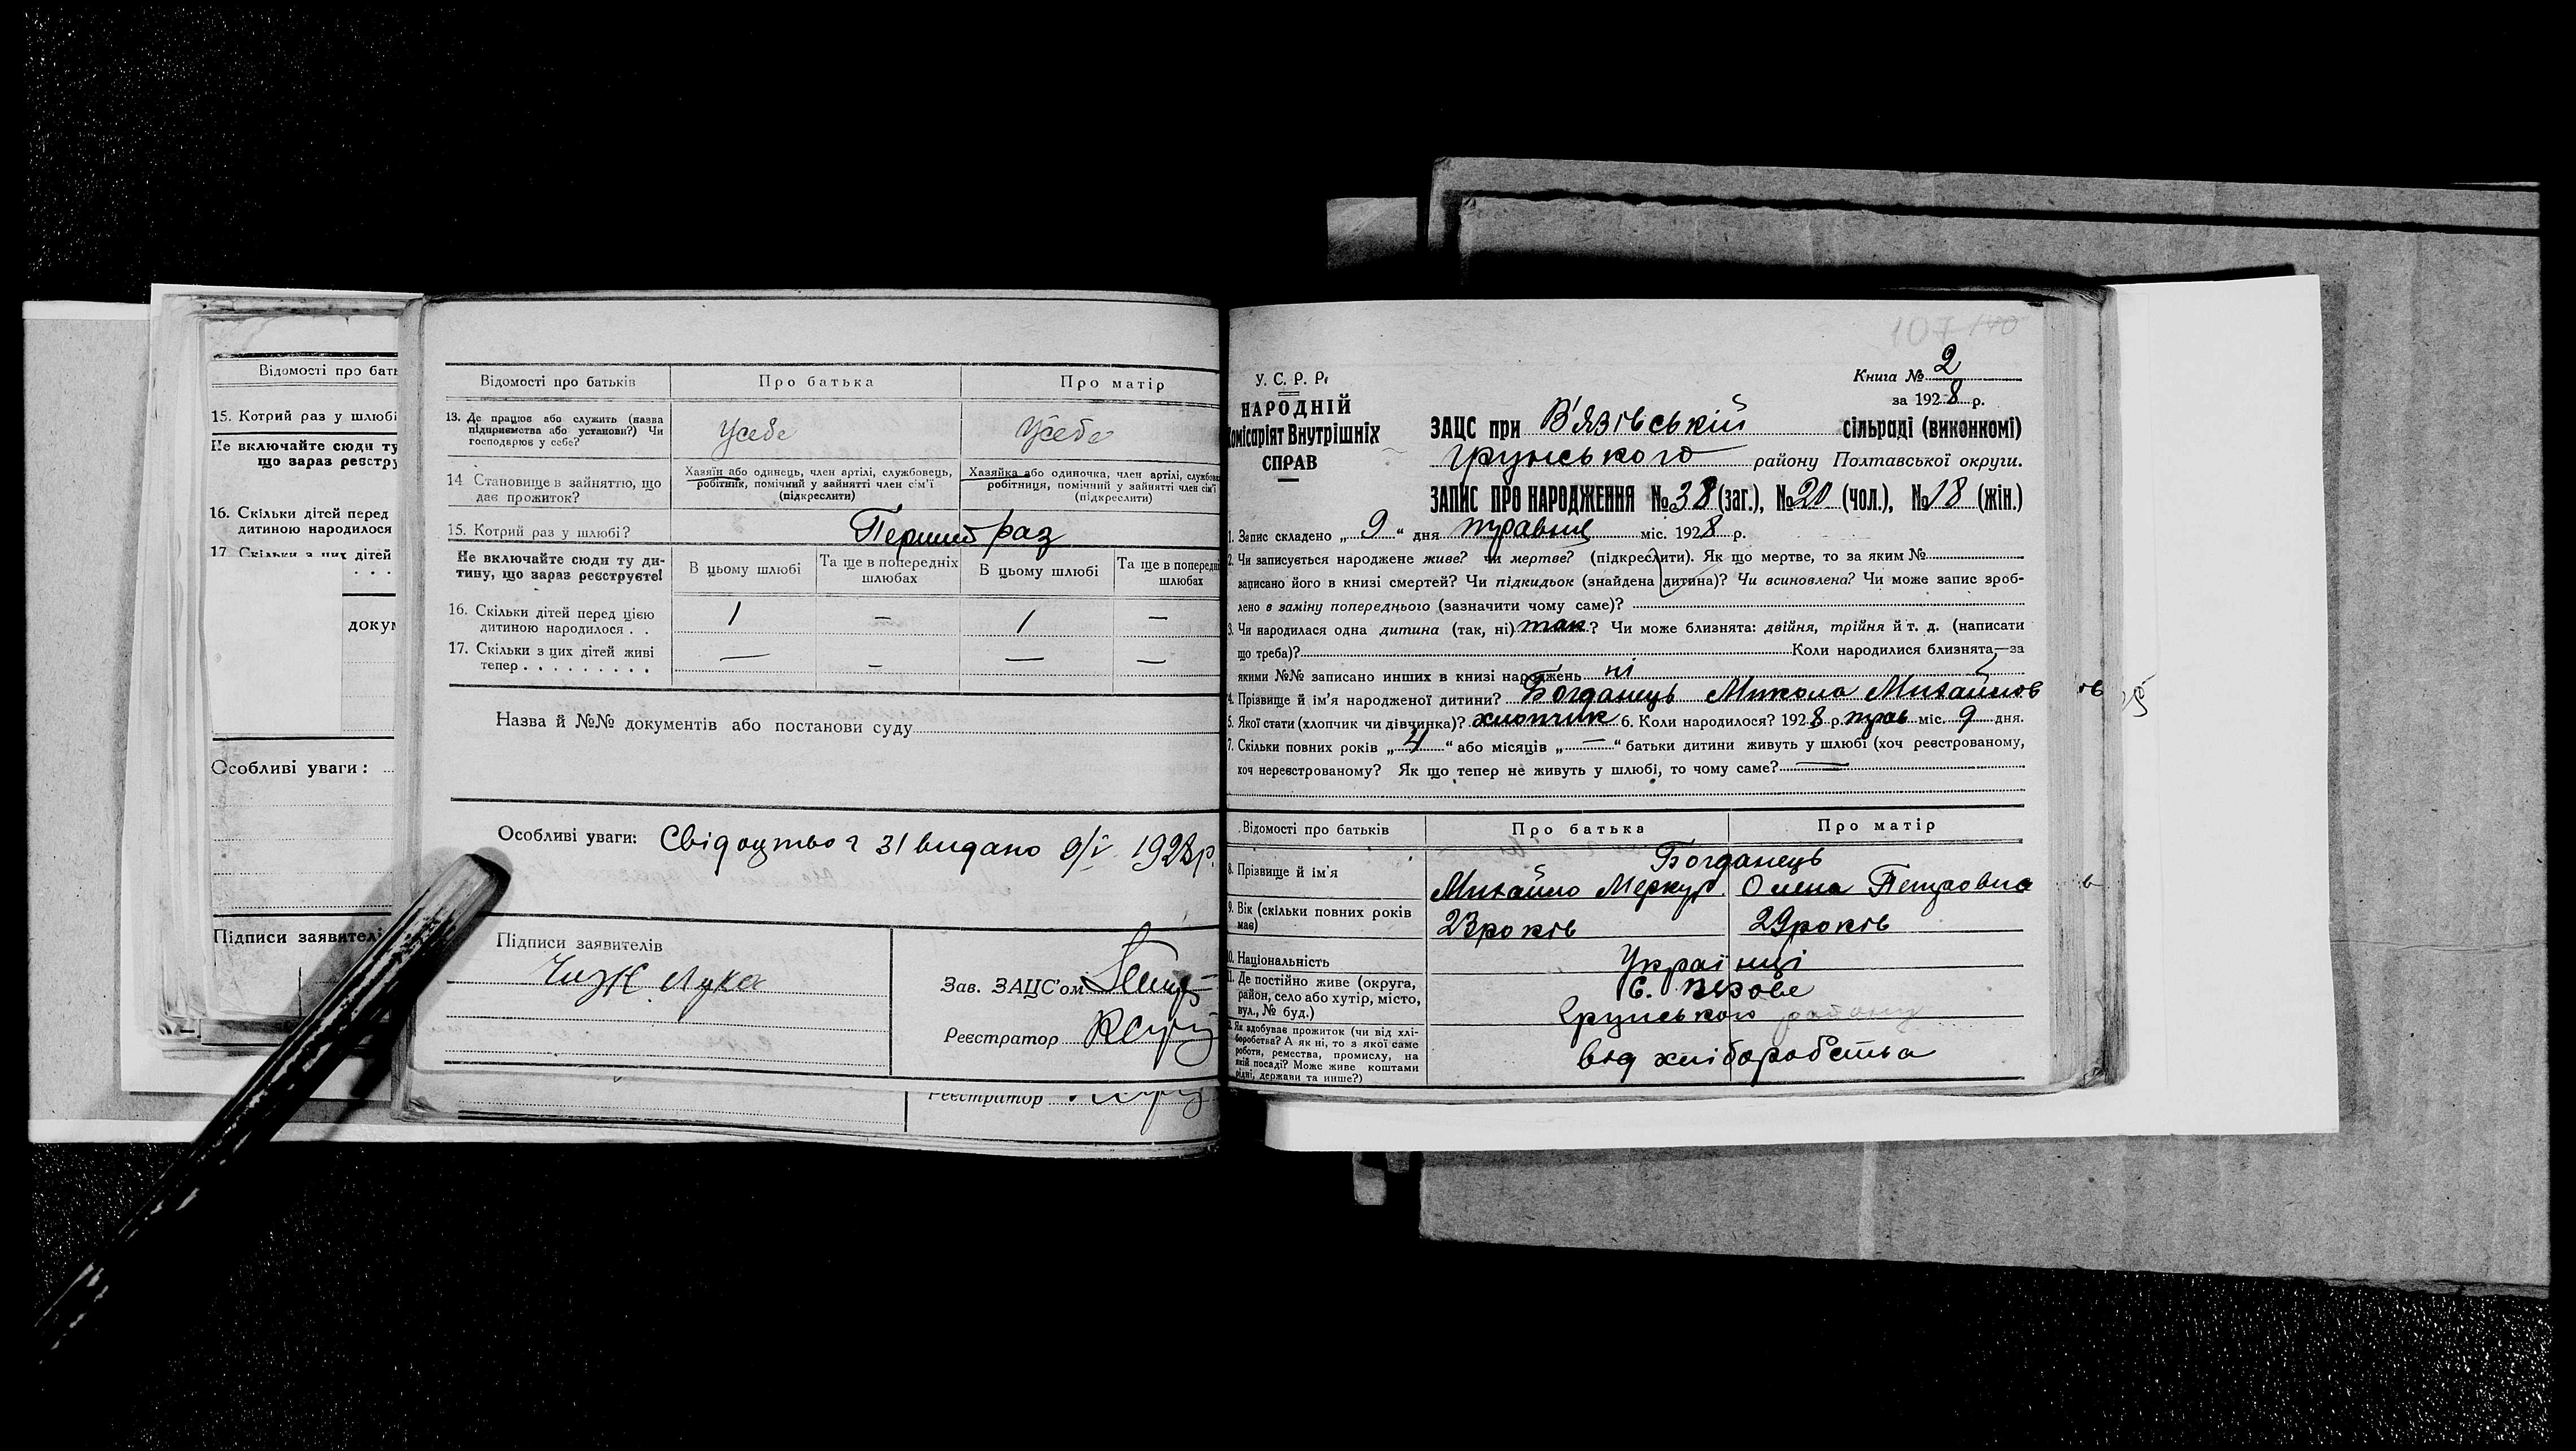 Відомості про бать
15. Котрий раз у шлюбі
Не включайте сюди ту
що зараз реєстру
16. Скільки дітей перед
дитиною народилося
17. Скільки з цих дітей
. . .
докум
Особливі уваги:
Підписи заявителі
Відомості про батьків
Про батька
Про матір
13. Де працює або служить (назва
підприємства або установи?) Чи
господарює у себе?
Усебе
Усебе
14 Становище в зайняттю, що
дає прожиток?
Хазяїн або одинець, член артілі, службовець,
робітник, помічний у зайнятті член сім'ї
(підкреслити)
Хазяйка або одиночка, член артілі, службов
робітниця, помічний у зайнятті член сім'ї
(підкреслити)
15. Котрий раз у шлюбі?
Перший раз
Не включайте сюди ту ди-
тину, що зараз реєструєте!
В цьому шлюбі
Та ще в попередніх
шлюбах
В цьому шлюбі
Та ще в попередн
шлюбах
16. Скільки дітей перед цією
дитиною народилося . .
1 — 1 —
17. Скільки з цих дітей живі
тепер . . . . . . . . .
— — — —
Назва й №№ документів або постанови суду
Особливі уваги: Свідоцтво 31 видано 9/V 1928р.
Підписи заявителів
Чиж Лука
Зав. ЗАЦС'ом
Реєстратор
Реєстратор
107 140
У. С. Р. Р.
НАРОДНІЙ
Комісаріят Внутрішніх
СПРАВ
Книга № 2
за 1928 р.
ЗАЦС при В'язівській сільраді (виконкомі)
Грунського району Полтавської округи.
ЗАПИС ПРО НАРОДЖЕННЯ №38 (заг.), №20 (чол.), №18 (жін.)
1. Запис складено „ 9 " дня травня міс. 1928 р.
2. Чи записується народжене живе? чи мертве? (підкреслити). Як що мертве, то за яким №
записано його в книзі смертей? Чи підкидьок (знайдена дитина)? Чи всиновлена? Чи може запис зроб-
лено в заміну попереднього (зазначити чому саме)?
3. Чи народилася одна дитина (так, ні) так? Чи може близнята: двійня, трійня й т. д. (написати
що треба)? Коли народилися близнята—за
якими №№ записано инших в книзі народжень ні
4. Прізвище й ім'я народженої дитини? Богданець Микола Михайлов
5. Якої стати (хлопчик чи дівчинка)? хлопчик 6. Коли народилося? 1928 р. трав міс. 9 дня.
7. Скільки повних років „ 4 " або місяців „ — " батьки дитини живуть у шлюбі (хоч реєстрованому,
хоч нереєстрованому? Як що тепер не живуть у шлюбі, то чому саме? —
Відомості про батьків
Про батька
Про матір
8. Прізвище й ім'я
Богданець
Михайло Меркур
Олена Петровна
9. Вік (скільки повних років
має)
23 років
29 років
10. Національність
Українці
11. Де постійно живе (округа,
район, село або хутір, місто,
вул., № буд.)
с. Вязове
Грунського району
12. Як здобуває прожиток (чи від хлі-
боробства? А як ні, то з якої саме
роботи, ремества, промислу, на
якій посаді? Може живе коштами
рідні, держави та инше?)
від хліборобства